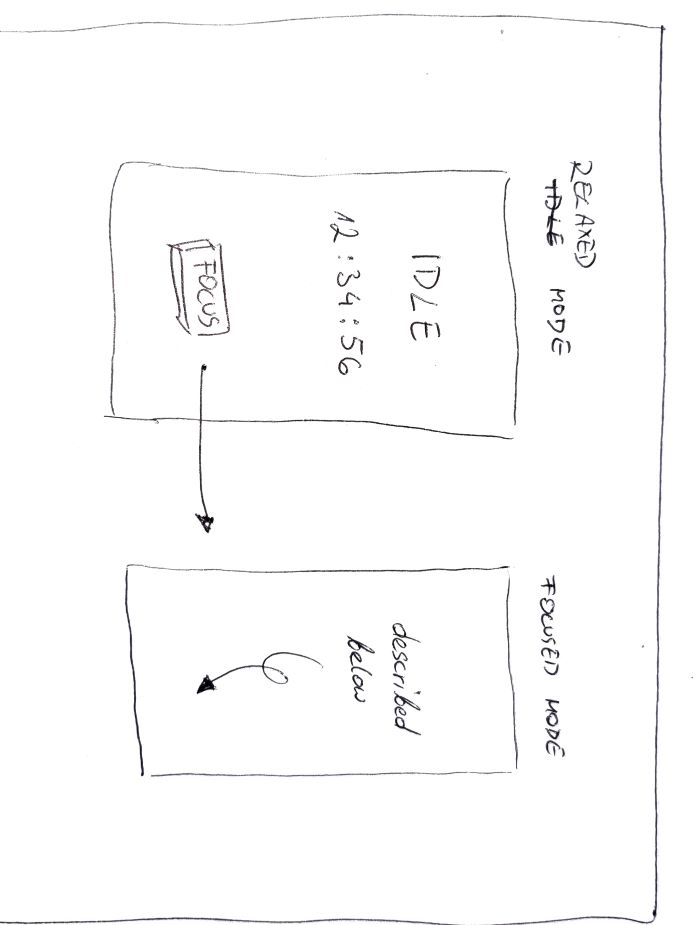 RELAXED
IDLE MODE
IDLE
12:34:56
FOCUS
FOCUSED MODE
described
below